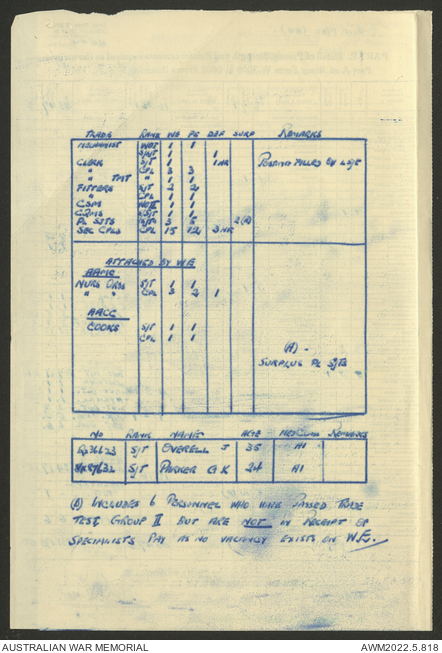 TRADE RANK WE PE DEF SURP REMARKS
MECHANIST WOI 1 1
S/SJT 1 1
CLERK SJT 1 1 NR POSITION FILLED BY L SJT
" CPL 3 3
" TMT " 1 1
FITTERS SJT 2 2
" CPL 1 1
CSM WOII 1 1
CQMS S/SJT 1 1
PL SJTS SJT 3 5 2(A)
SEC CPLS CPL 15 12 3 NR
ATTACHED BY WE
AAMC
NURS ORDS SJT 1 1
" " CPL 3 2 1
AACC
COOKS SJT 1 1
CPL 1 1
(A) -
SURPLUS PL SJTS
NO RANK NAME AGE MED CLASS REMARKS
SJT EVERELL J 35 A1
SJT PARKER G K 24 A1
(B) INCLUDES 6 PERSONNEL WHO HAVE PASSED TRADE
TEST GROUP II BUT ARE NOT IN RECEIPT OF
SPECIALISTS PAY AS NO VACANCY EXISTS ON W.E.
AUSTRALIAN WAR MEMORIAL AWM2022.5.818